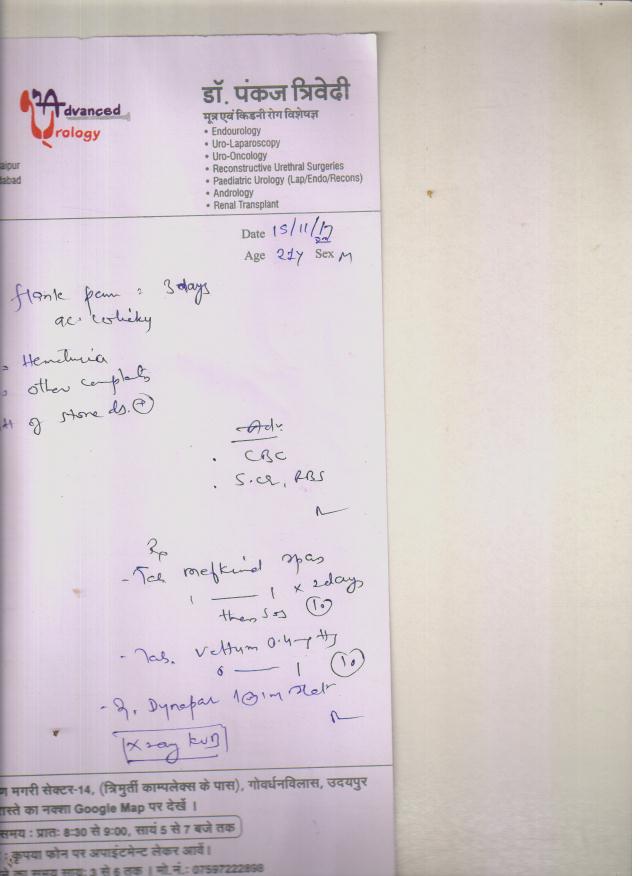 Advanced
Urology
डॉ. पंकज त्रिवेदी
मूत्र एवं किडनी रोग विशेषज्ञ
• Endourology
• Uro-Laparoscopy
• Uro-Oncology
• Reconstructive Urethral Surgeries
• Paediatric Urology (Lap/Endo/Recons)
• Andrology
• Renal Transplant
aipur
abad
Date 15/11/17
Age 21y Sex M
flank pain : 3 days
ac. colicky
Hematuria
other complaints
of stone ds. +
Adv.
• CBC
• S.cr, RBS
Rp
- Tab mefkind spas
1 — 1 x 2 days
then sos 10
- Tab. Veltam 0.4
0 — 1 10
- Dynapar 1 im stat
X ray KUB
ण मगरी सेक्टर-14, (त्रिमुर्ती काम्पलेक्स के पास), गोवर्धनविलास, उदयपुर
रास्ते का नक्शा Google Map पर देखें ।
समय : प्रातः 8:30 से 9:00, सायं 5 से 7 बजे तक
कृपया फोन पर अपाइंटमेन्ट लेकर आवें।
का समय सायः 3 से 6 तक । मो.नं.: 07597222898